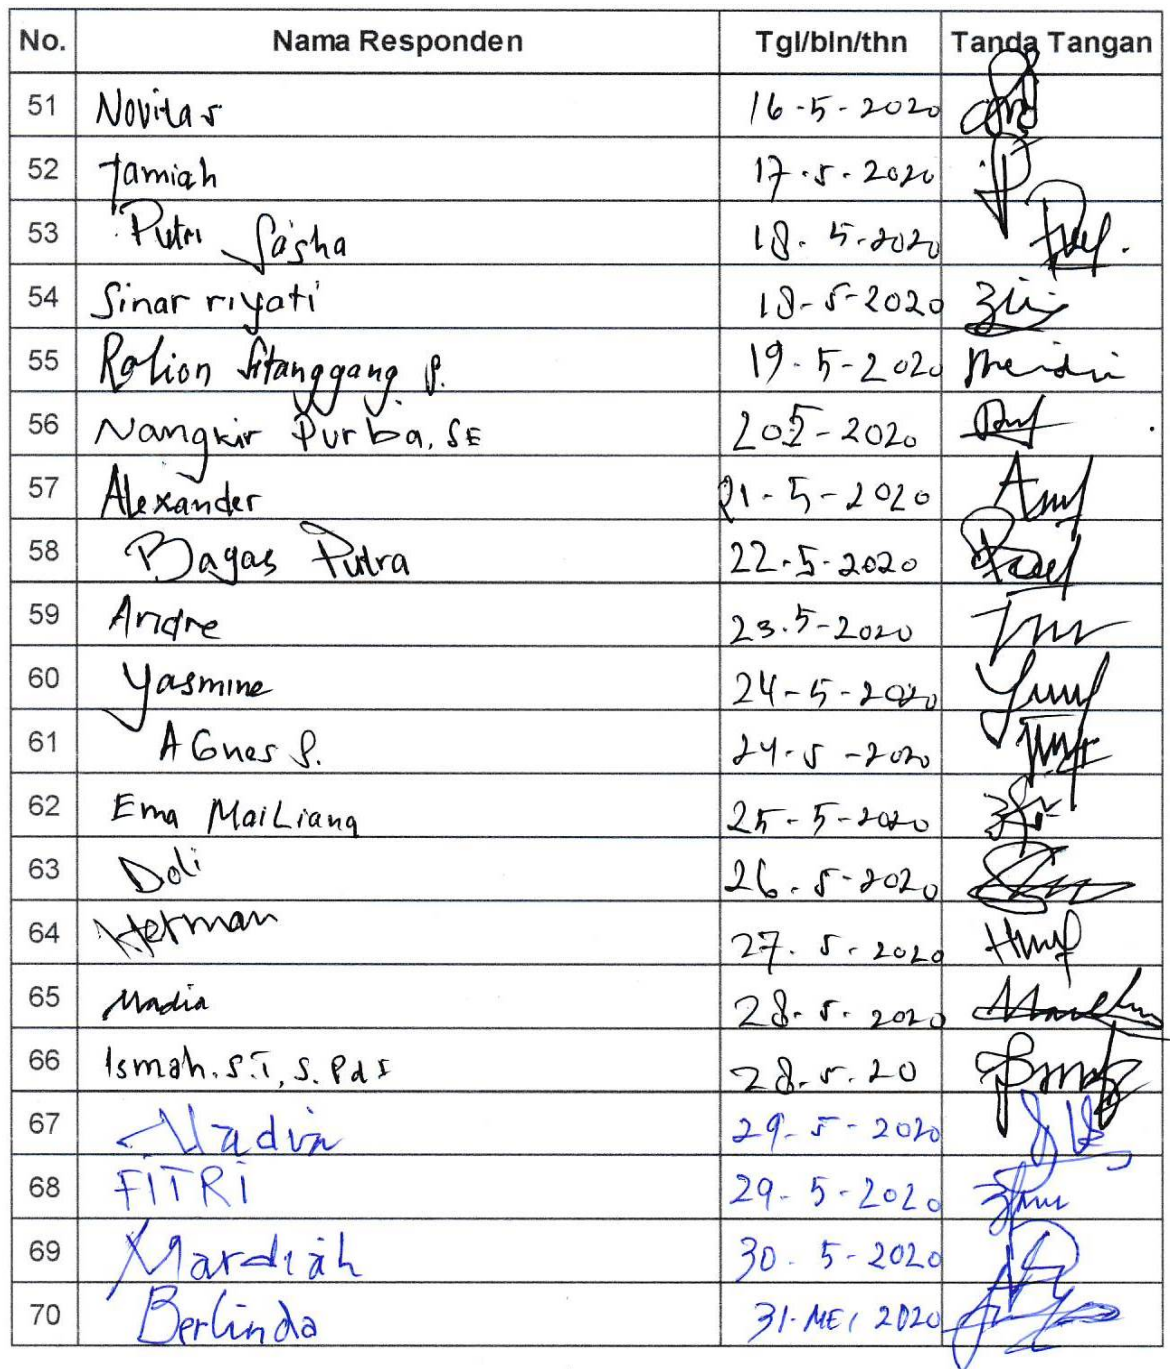 No. Nama Responden Tgl/bln/thn Tanda Tangan
51 Novitas 16-5-2020
52 Jamiah 17-5-2020
53 Putri Sasha 18-5-2020
54 Sinar riyati 18-5-2020
55 Ralion Sitanggang P. 19-5-2020
56 Nangkir Purba, SE 20-5-2020
57 Alexander 21-5-2020
58 Bagas Putra 22-5-2020
59 Andre 23.5-2020
60 Yasmine 24-5-2020
61 AGnes S. 24-5-2020
62 Ema MaiLiana 25-5-2020
63 Doli 26.5-2020
64 Herman 27.5.2020
65 Madia 28-5-2020
66 Ismah.S.T, S.PdI 28.5.20
67 Nadia 29-5-2020
68 FITRI 29-5-2020
69 Mardiah 30.5-2020
70 Berlinda 31-MEI 2020